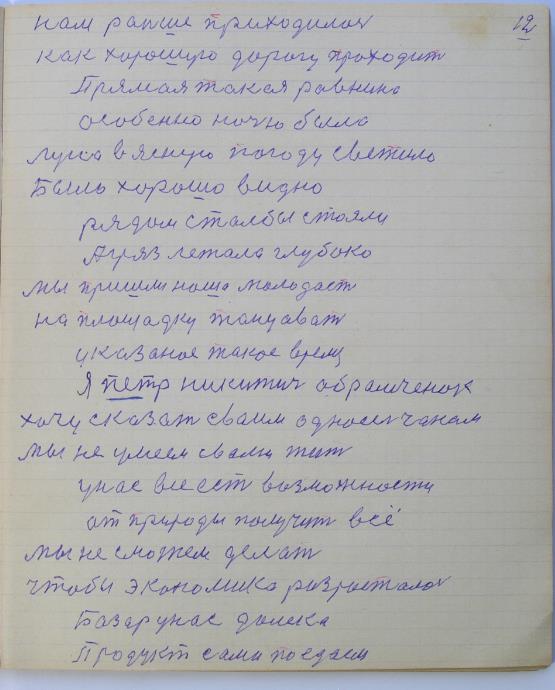 12
нам раньше приходилос
как хорошую дорогу проходит
Прямая такая равнина
особенно ночю было
луна в ясную погоду светило
Было хорошо видно
рядом сталбы стояли
Агряз летала глубоко
мы пришли наша молодаст
на площадку танцават
указаное такое время
Я петр никитич абрамченок
хочу сказат сваим односелчанам
мы не умеем свалы жит
унас все ест возможности
от природы получит всё
мы не сможем делат
чтобы экономика разросталос
Базар унас далека
Продукт сами поедаем